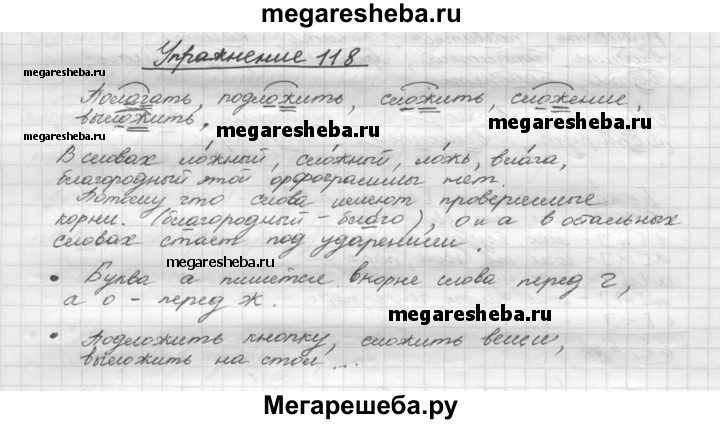 megaresheba.ru
Упражнение 118
megaresheba.ru
Полагать, подложить, сложить, сложение,
выложить.
megaresheba.ru
megaresheba.ru
В словах ло́жный, сло́жный, ло́жь, вла́га,
благородный этой орфограммы нет.
Потому что слова имеют проверяемые
корни. (благородный – бла́го), о и а в остальных
словах стает под ударением.
megaresheba.ru
• Буква а пишется в корне слова перед г,
а о – перед ж.
megaresheba.ru
• Подложить кнопку, сложить вещи,
выложить на стол...
Мегарешеба.ру